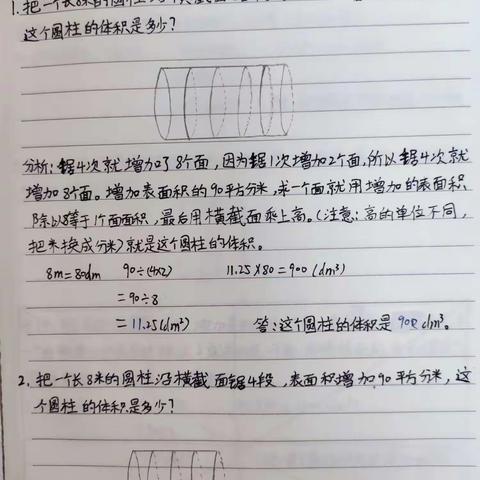 1.把一个长8米的圆柱
这个圆柱的体积是多少?
分析:锯4次就增加了8个面,因为锯1次增加2个面,所以锯4次就
增加8个面。增加表面积的90平方分米,求一个面就用增加的表面积
除以8等于1个面面积,最后用横截面乘上高。(注意:高的单位不同,
把米换成分米)就是这个圆柱的体积。
8m=80dm 90÷(4×2) 11.25×80=900(dm³)
=90÷8
=11.25(dm²) 答:这个圆柱的体积是900dm³。
2.把一个长8米的圆柱沿横截面锯4段,表面积增加90平方分米,这
个圆柱的体积是多少?